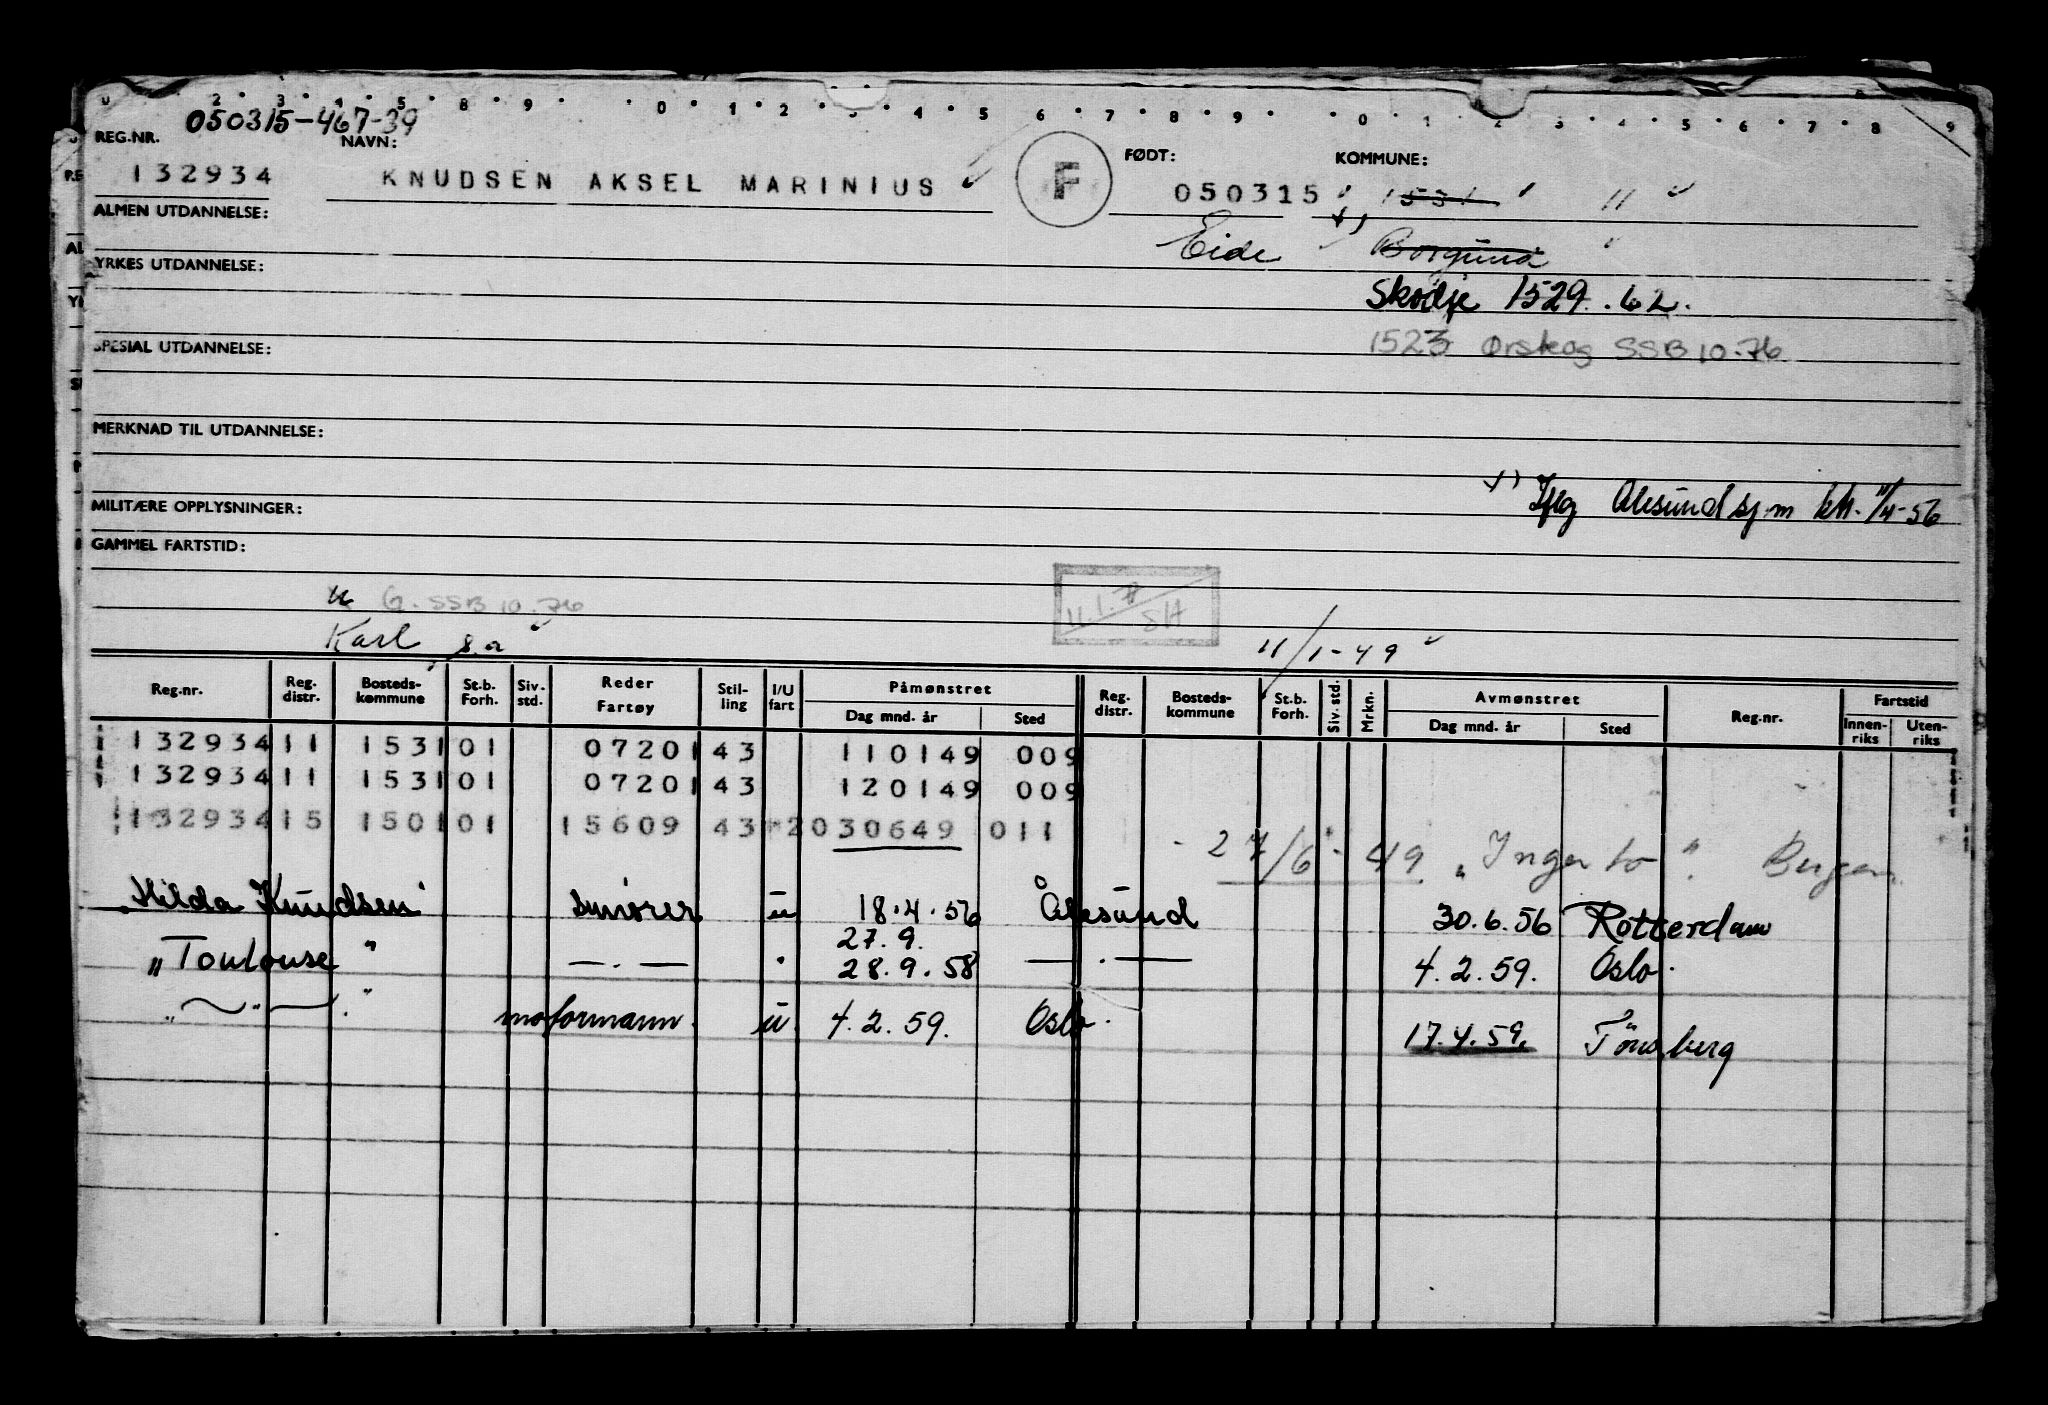 050315-467-39
REG.NR. NAVN: FØDT: KOMMUNE:
132934 KNUDSEN AKSEL MARINIUS F 050315 1531 11
ALMEN UTDANNELSE:
Eide Borgund
YRKES UTDANNELSE:
Skodje 1529. 62.
SPESIAL UTDANNELSE: 1523 Ørskog SSB 10.76
MERKNAD TIL UTDANNELSE:
Iflg Ålesund sj.m 11/4-56
MILITÆRE OPPLYSNINGER:
GAMMEL FARTSTID:
G. SSB 10.76
Karl s.a 11/1-49
Reg.nr. Reg. distr. Bosteds-kommune St.b. Forh. Siv. std. Reder Fartøy Stil-ling I/U fart Påmønstret Dag mnd. år Sted Reg. distr. Bosteds-kommune St.b. Forh. Siv. std. Mrkn. Avmønstret Dag mnd. år Sted Reg.nr. Fartstid Innen-riks Uten-riks
132934 11 1531 01 07201 43 110149 009
132934 11 1531 01 07201 43 120149 009
132934 15 1501 01 15609 43 2 030649 011
27/6-49 "Ingerto". Bergen
"Hilda Knudsen" smører u 18.4.56 Ålesund 30.6.56 Rotterdam
27.9.
"Toulouse" —.— " 28.9.58 —.— 4.2.59. Oslo.
" — " — " moformann. u. 4.2.59. Oslo. 17.4.59. Tönsberg